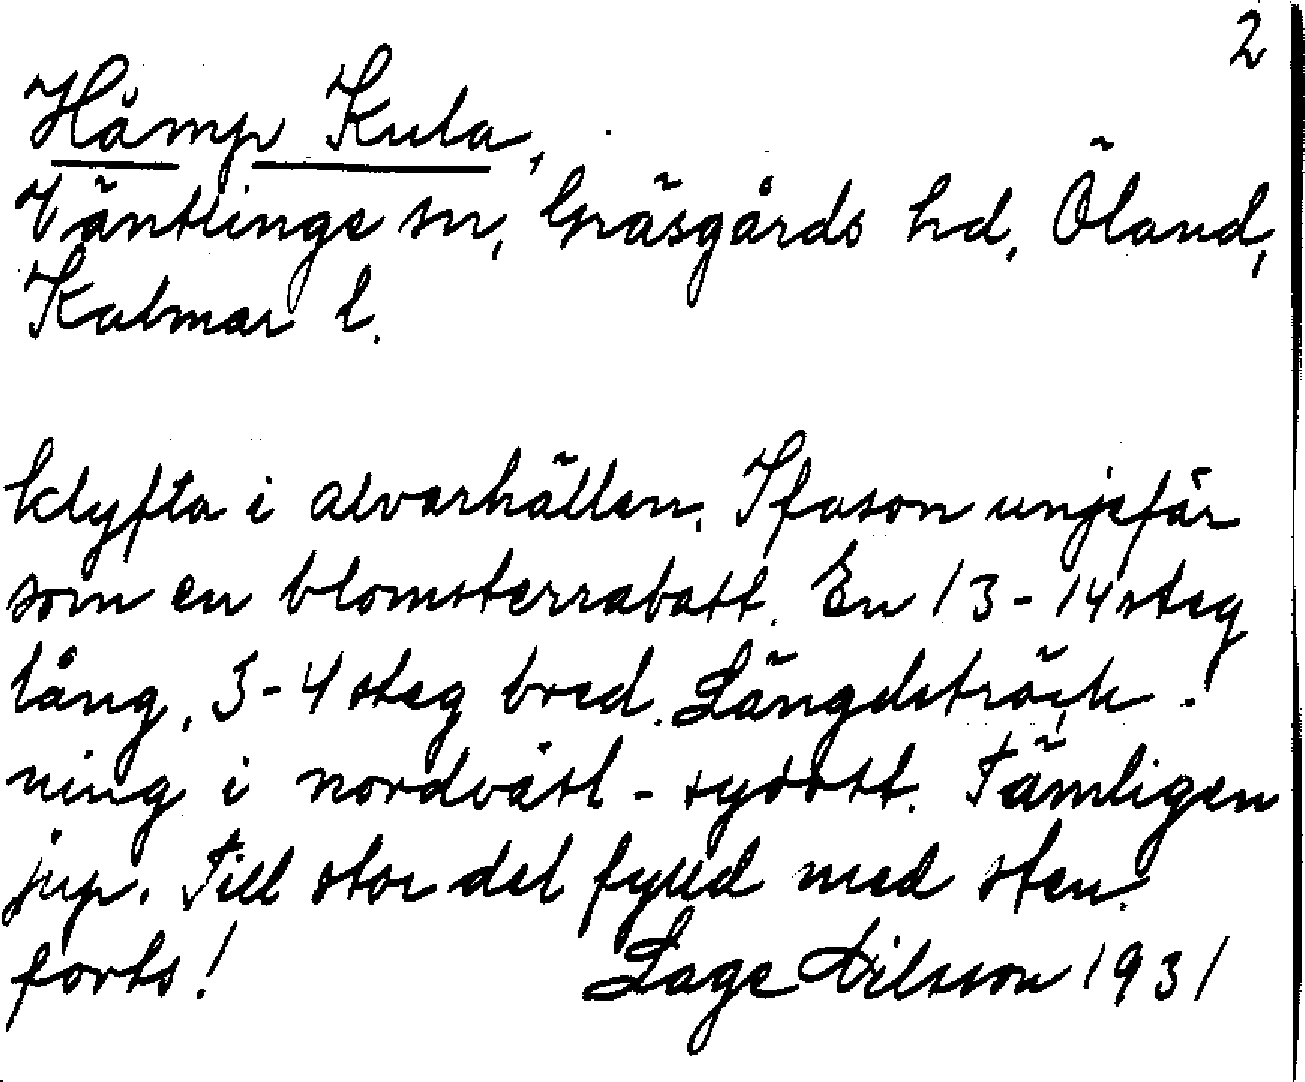 2
Hämp Kula,
Väntlinge sn, Gräsgårds hd, Öland,
Kalmar l.
klyfta i alvarhällen. I fason unjefär
som en blomsterrabatt. En 13-14 steg
lång, 3-4 steg bred. Längdsträck-
ning i nordväst - sydost. Tämligen
jup. Till stor del fylld med sten.
forts! Lage Nilsson 1931